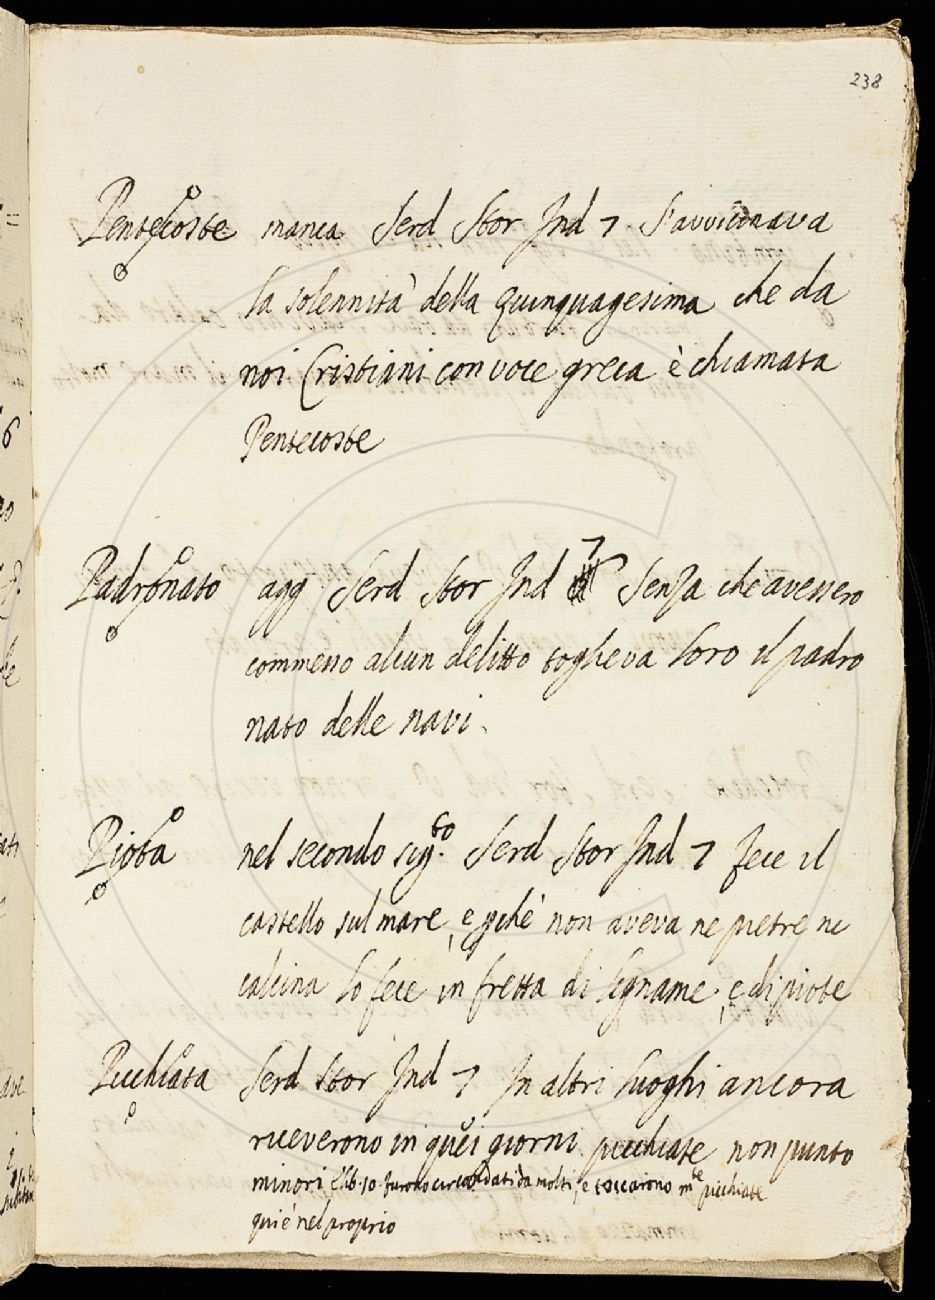 238
Pentecoste manca Serd Stor Ind 7. S'avvicinava
la solennità della quinquagesima che da
noi Cristiani con voce greca è chiamata
Pentecoste
Padronato agg Serd Stor Ind 7 Senza che avessero
commesso alcun delitto toglieva loro il padro
nato delle navi.
Piota nel secondo sig.to Serd Stor Ind 7 fece il
castello sul mare, e pchè non aveva ne pietre ne
calcina lo fece in fretta di legname, e di piote
Picchiata Serd Stor Ind 7 In altri luoghi ancora
riceverono in quei giorni picchiate non punto
minori e lib. 10. furono circondati da molti, e toccarono m.te picchiate
qui è nel proprio